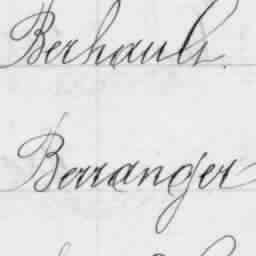 Berhault.
Berranger